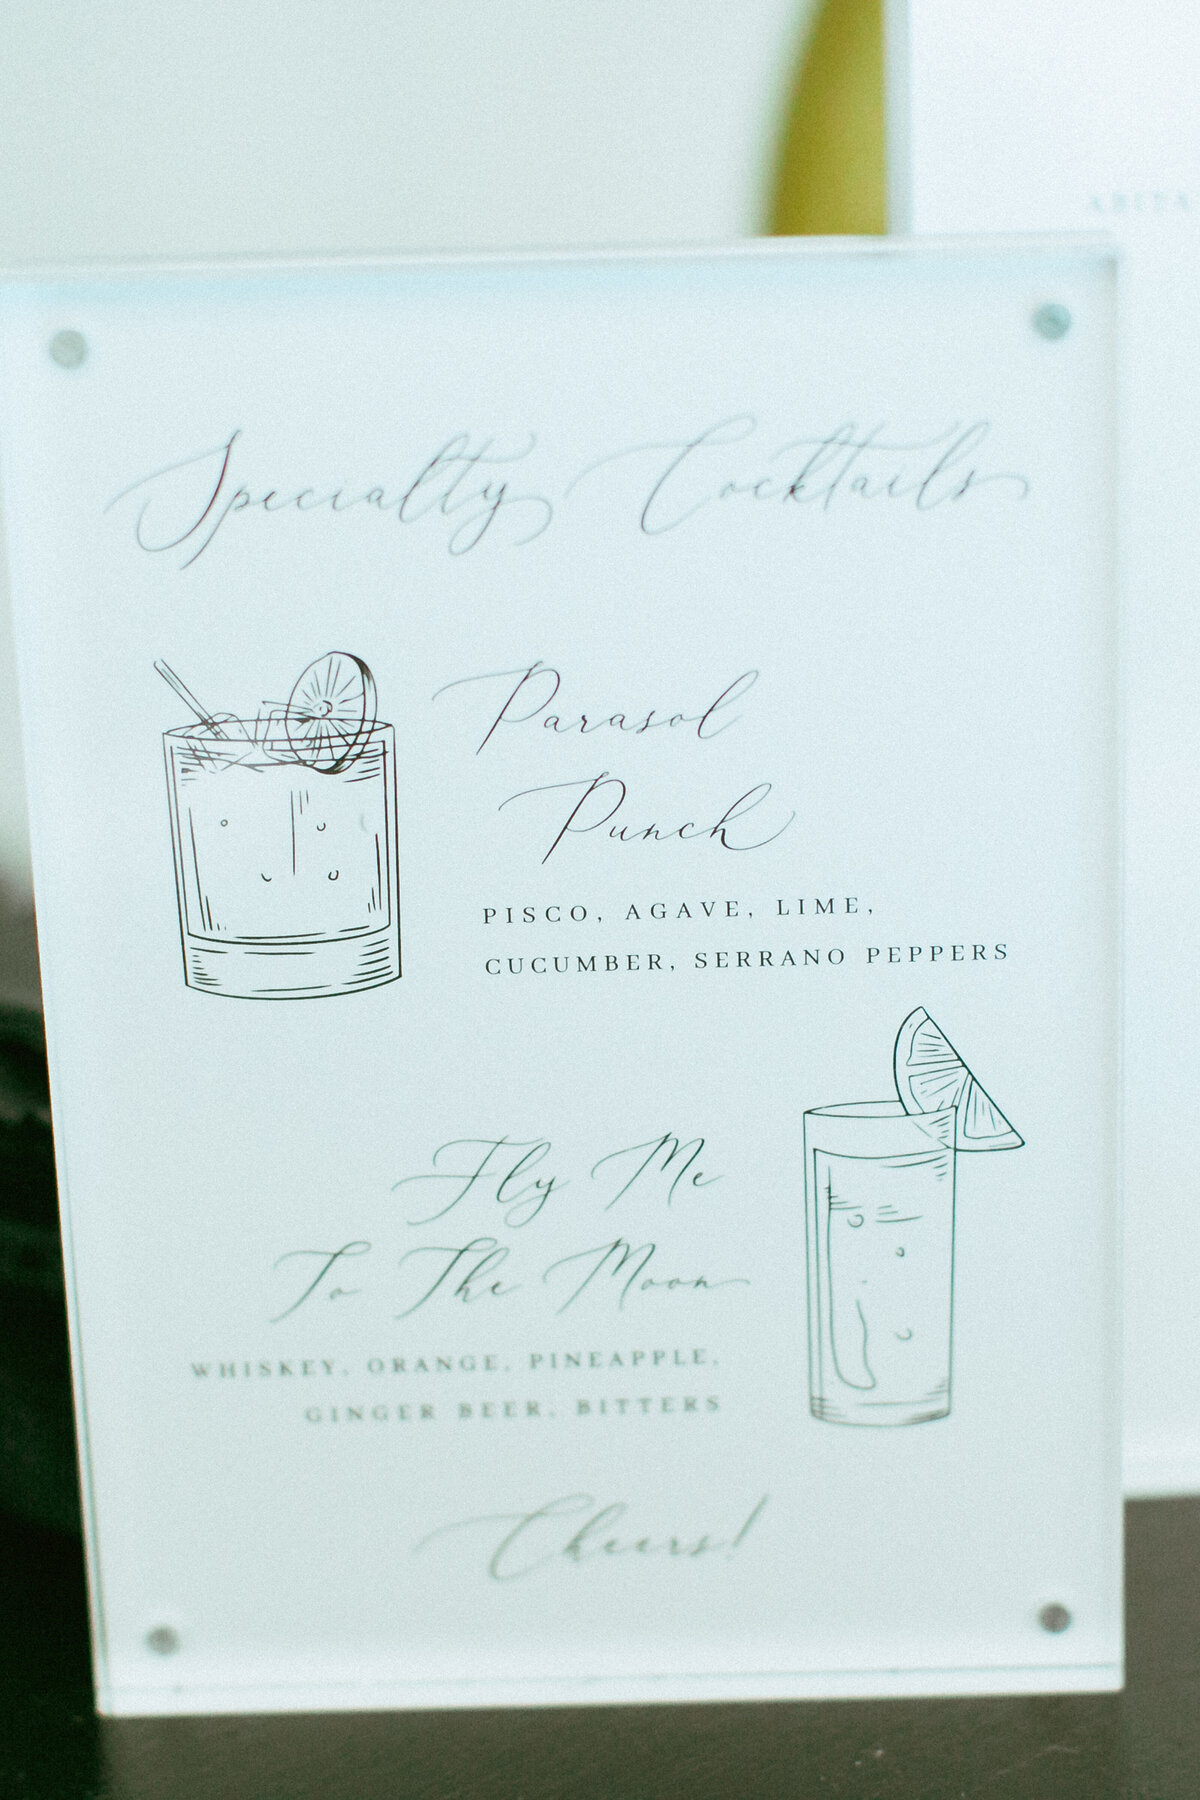 Specialty Cocktails
Parasol
Punch
PISCO, AGAVE, LIME,
CUCUMBER, SERRANO PEPPERS
Fly Me
To The Moon
WHISKEY, ORANGE, PINEAPPLE,
GINGER BEER, BITTERS
Cheers!